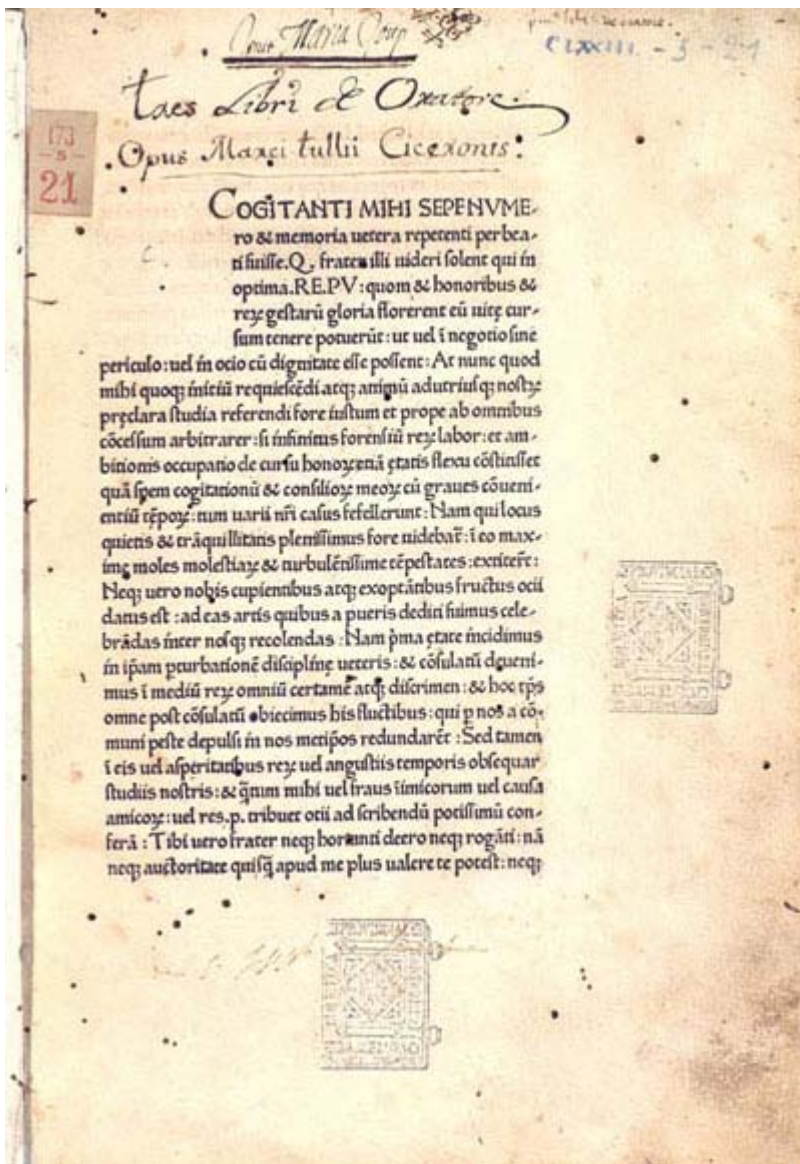 CLXXIII - 5 - 21
tres Libri de Oratore.
Opus Marci tullii Ciceronis:
173
-5-
21
COGITANTI MIHI SEPENVME-
ro & memoria uetera repetenti perbea-
ti fuisse.Q, frater illi uideri solent qui in
optima.RE.PV: quom & honoribus &
reꝝ gestarū gloria florerent eū uitę cur-
sum tenere potuerūt: ut uel ī negotio sine
periculo: uel in ocio cū dignitate esse possent: At nunc quod
mihi quoqꝫ initiū requiescēdi atqꝫ animū adutriusqꝫ nostꝝ
pręclara studia referendi fore iustum et prope ab omnibus
cōcessum arbitrarer: si infinitus forensiū reꝝ labor: et am-
bitionis occupatio de cursu honoꝝ etiā ętatis flexu cōstitisset
quā spem cogitationū & consilioꝝ meoꝝ cū graues cōueni-
entiū tēpoꝝ: tum uarii nr̄i casus fefellerunt: Nam qui locus
quietis & trāquillitatis plenissimus fore uidebat̄: ī eo max-
imę moles molestiaꝝ & turbulētissime tēpestates: extiter̄t:
Neqꝫ uero nobis cupientibus atqꝫ exoptātibus fructus ocii
datus est: ad eas artis quibus a pueris dediti fuimus cele-
brādas inter nosqꝫ recolendas: Nam pͥma ętate incidimus
in ip̄am ꝑturbationē disciplinę ueteris: & cōsulatū deueni-
mus ī mediū reꝝ omniū certamē atqꝫ discrimen: & hoc tp̄s
omne post cōsulatū obiecimus his fluctibus: qui ꝑ nos a cō-
muni peste depulsi in nos metip̄os redundarēt: Sed tamen
ī eis uel asperitatibus reꝝ uel angustiis temporis obsequar
studiis nostris: & q̄ntum mihi uel fraus īimicorum uel causa
amicoꝝ: uel res.p. tribuet otii ad scribendū potissimū con-
ferā: Tibi uero frater neqꝫ hortanti deero neqꝫ rogāti: nā
neqꝫ auctoritate quisq̄ apud me plus ualere te potest: neqꝫ